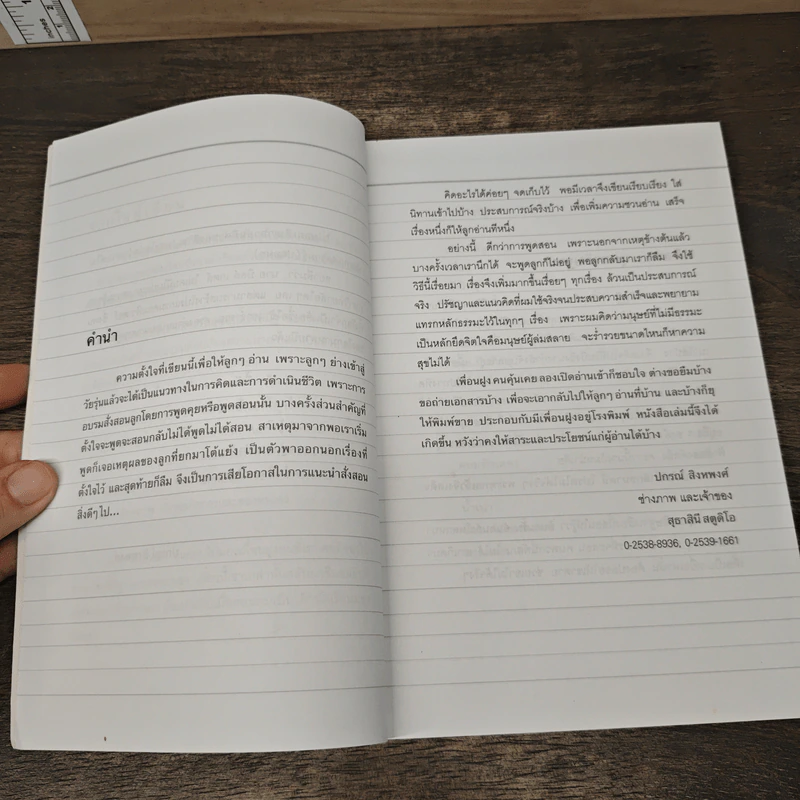 inches
1
2
คำนำ
ความตั้งใจที่เขียนนี้เพื่อให้ลูกๆ อ่าน เพราะลูกๆ ย่างเข้าสู่
วัยรุ่นแล้วจะได้เป็นแนวทางในการคิดและการดำเนินชีวิต เพราะการ
อบรมสั่งสอนลูกโดยการพูดคุยหรือพูดสอนนั้น บางครั้งส่วนสำคัญที่
ตั้งใจจะพูดจะสอนกลับไม่ได้พูดไม่ได้สอน สาเหตุมาจากพอเราเริ่ม
พูดก็เจอเหตุผลของลูกที่ยกมาโต้แย้ง เป็นตัวพาออกนอกเรื่องที่
ตั้งใจไว้ และสุดท้ายก็ลืม จึงเป็นการเสียโอกาสในการแนะนำสั่งสอน
สิ่งดีๆ ไป...
คิดอะไรได้ค่อยๆ จดเก็บไว้ พอมีเวลาจึงเขียนเรียบเรียง ใส่
นิทานเข้าไปบ้าง ประสบการณ์จริงบ้าง เพื่อเพิ่มความชวนอ่าน เสร็จ
เรื่องหนึ่งก็ให้ลูกอ่านทีหนึ่ง
อย่างนี้ ดีกว่าการพูดสอน เพราะนอกจากเหตุข้างต้นแล้ว
บางครั้งเวลาเรานึกได้ จะพูดลูกก็ไม่อยู่ พอลูกกลับมาเราก็ลืม จึงใช้
วิธีนี้เรื่อยมา เรื่องจึงเพิ่มมากขึ้นเรื่อยๆ ทุกเรื่อง ล้วนเป็นประสบการณ์
จริง ปรัชญาและแนวคิดที่ผมใช้จริงจนประสบความสำเร็จและพยายาม
แทรกหลักธรรมะไว้ในทุกๆ เรื่อง เพราะผมคิดว่ามนุษย์ที่ไม่มีธรรมะ
เป็นหลักยึดจิตใจคือมนุษย์ผู้ล่มสลาย จะร่ำรวยขนาดไหนก็หาความ
สุขไม่ได้
เพื่อนฝูง คนคุ้นเคย ลองเปิดอ่านเข้าก็ชอบใจ ต่างขอยืมบ้าง
ขอถ่ายเอกสารบ้าง เพื่อจะเอากลับไปให้ลูกๆ อ่านที่บ้าน และบ้างก็ยุ
ให้พิมพ์ขาย ประกอบกับมีเพื่อนฝูงอยู่โรงพิมพ์ หนังสือเล่มนี้จึงได้
เกิดขึ้น หวังว่าคงให้สาระและประโยชน์แก่ผู้อ่านได้บ้าง
ปกรณ์ สิงหพงศ์
ช่างภาพ และเจ้าของ
สุธาสินี สตูดิโอ
0-2538-8936, 0-2539-1661